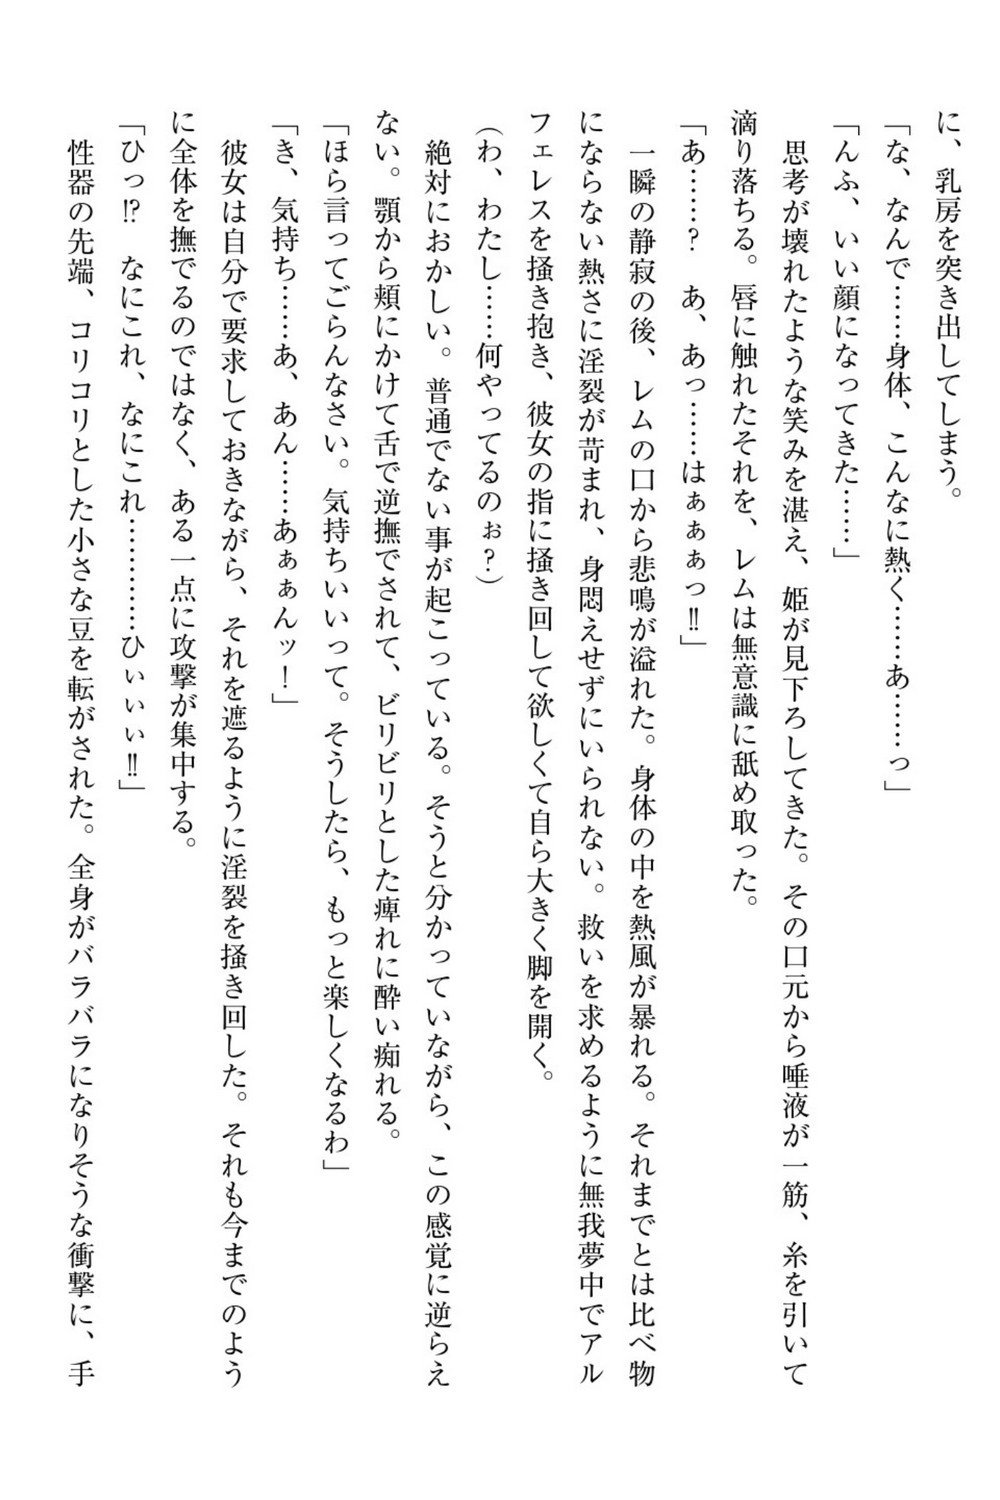 に、乳房を突き出してしまう。
「な、なんで……身体、こんなに熱く……あ……っ」
「んふ、いい顔になってきた……」
　思考が壊れたような笑みを湛え、姫が見下ろしてきた。その口元から唾液が一筋、糸を引いて
滴り落ちる。唇に触れたそれを、レムは無意識に舐め取った。
「あ……？　あ、あっ……はぁぁぁっ‼」
　一瞬の静寂の後、レムの口から悲鳴が溢れた。身体の中を熱風が暴れる。それまでとは比べ物
にならない熱さに淫裂が苛まれ、身悶えせずにいられない。救いを求めるように無我夢中でアル
フェレスを掻き抱き、彼女の指に掻き回して欲しくて自ら大きく脚を開く。
（わ、わたし……何やってるのぉ？）
　絶対におかしい。普通でない事が起こっている。そうと分かっていながら、この感覚に逆らえ
ない。顎から頬にかけて舌で逆撫でされて、ビリビリとした痺れに酔い痴れる。
「ほら言ってごらんなさい。気持ちいいって。そうしたら、もっと楽しくなるわ」
「き、気持ち……あ、あん……あぁぁんッ！」
　彼女は自分で要求しておきながら、それを遮るように淫裂を掻き回した。それも今までのよう
に全体を撫でるのではなく、ある一点に攻撃が集中する。
「ひっ⁉　なにこれ、なにこれ…………ひぃぃぃ‼」
　性器の先端、コリコリとした小さな豆を転がされた。全身がバラバラになりそうな衝撃に、手